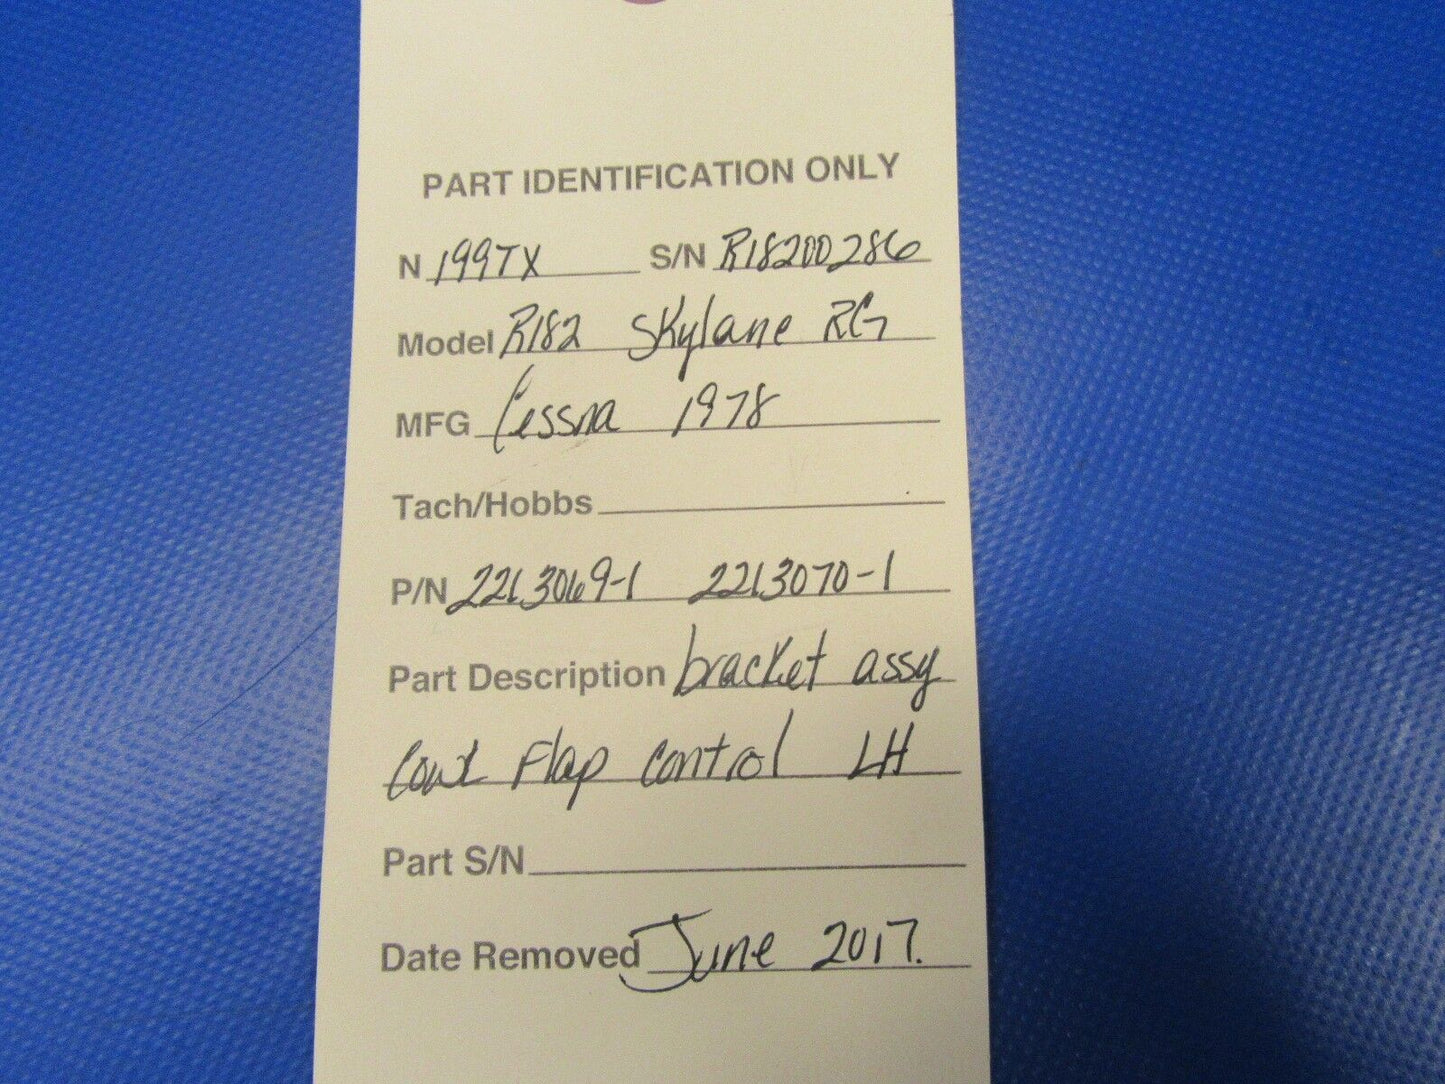 PART IDENTIFICATION ONLY
N 1997X S/N R18200286
Model R182 Skylane RG
MFG Cessna 1978
Tach/Hobbs
P/N 2213069-1 2213070-1
Part Description bracket assy
Cowl Flap Control LH
Part S/N
Date Removed June 2017.